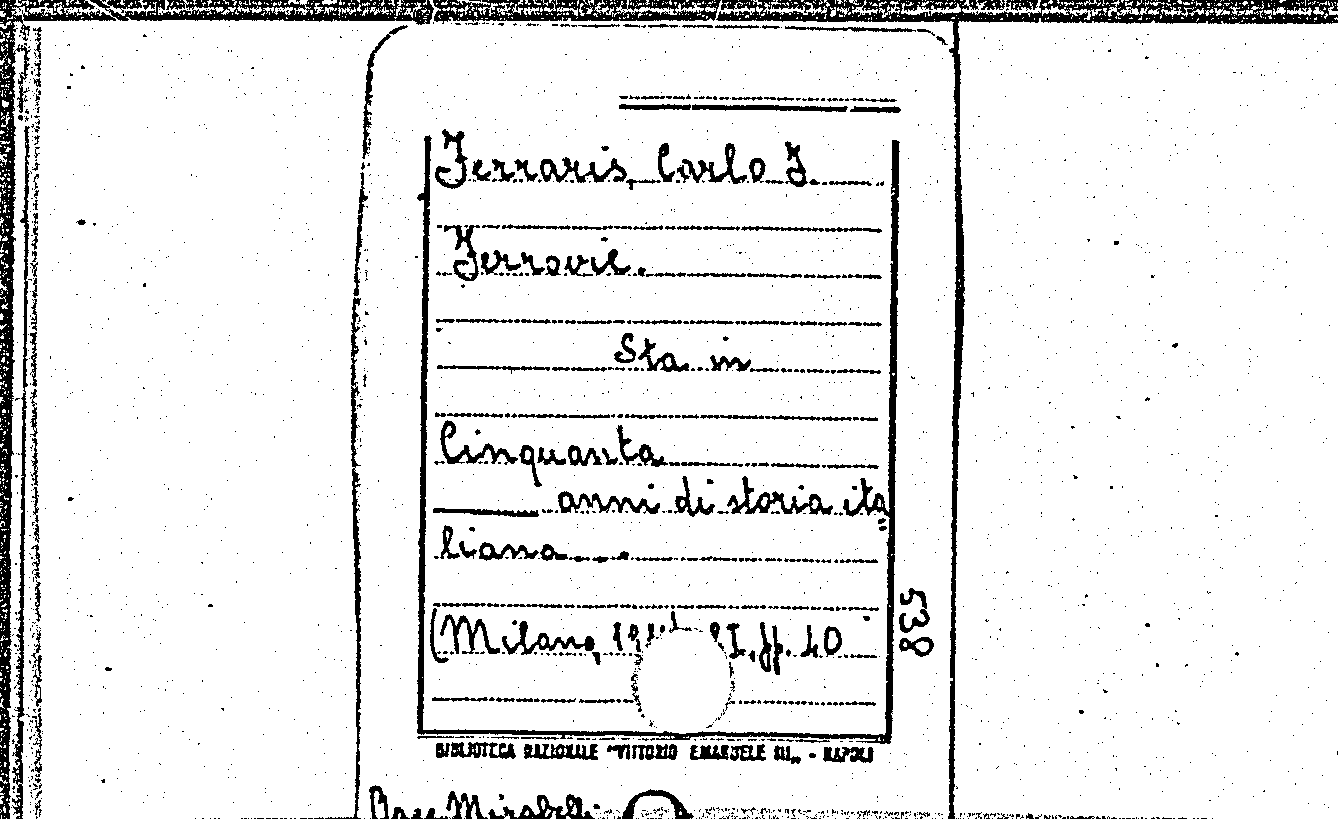 Ferraris, Carlo F.
Ferrovie.
Sta in
Cinquanta
anni di storia ita=
liana....
(Milano, I, pp. 40
538
BIBLIOTECA NAZIONALE "VITTORIO EMANUELE III„ - NAPOLI